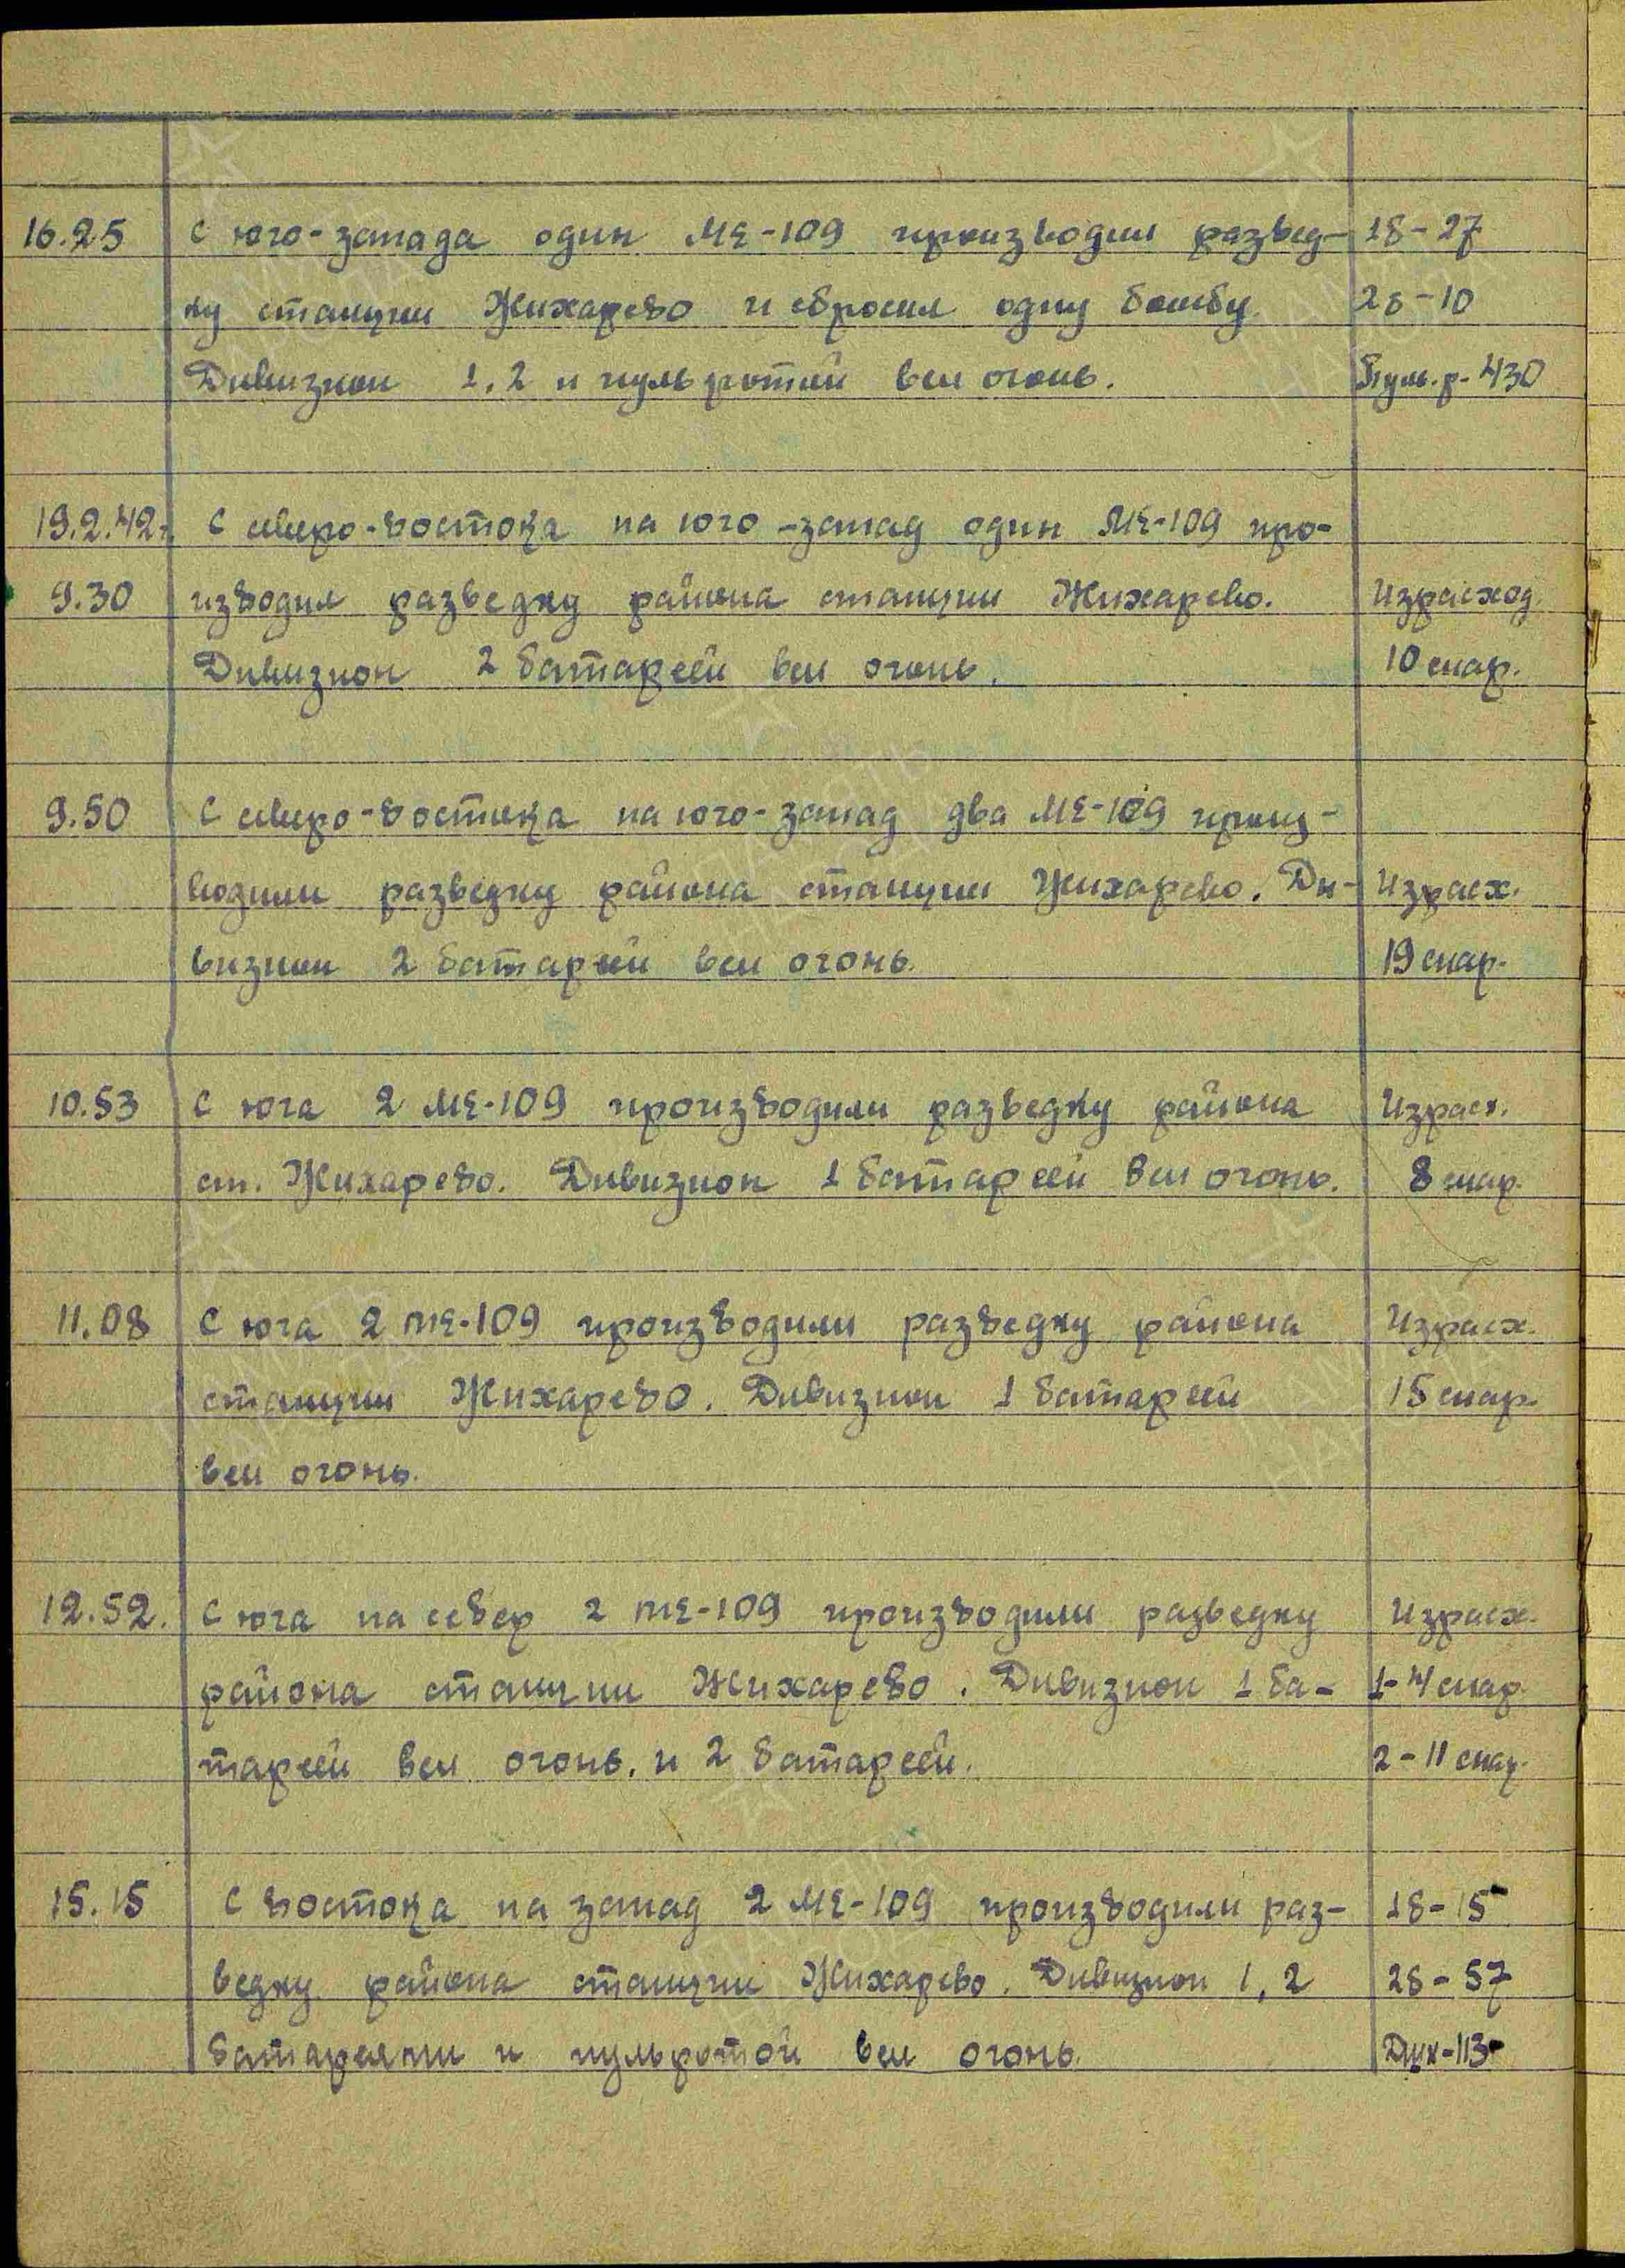 16.25 с юго-запада один МЕ-109 производил развед- 1б-27
ку станции Жихарево и сбросил одну бомбу. 2б-10
Дивизион 1, 2 и пульротой вел огонь. пуль.р.-430
19.2.42г. С северо-востока на юго-запад один МЕ-109 про-
9.30 изводил разведку района станции Жихарево. Израсход.
Дивизион 2 батареей вел огонь. 10 снар.
9.50 С северо-востока на юго-запад два МЕ-109 произ-
водили разведку района станции Жихарево. Ди- Израсх.
визион 2 батареей вел огонь. 19 снар.
10.53 С юга 2 МЕ-109 производили разведку района Израсх.
ст. Жихарево. Дивизион 1 батареей вел огонь. 8 снар.
11.08 С юга 2 МЕ-109 производили разведку района Израсх.
станции Жихарево. Дивизион 1 батареей 15 снар.
вел огонь.
12.52. С юга на север 2 МЕ-109 производили разведку Израсх.
района станции Жихарево. Дивизион 1 ба- 1-4 снар.
тареей вел огонь. и 2 батареей. 2-11 снар.
15.15 С востока на запад 2 МЕ-109 производили раз- 1б-15
ведку района станции Жихарево. Дивизион 1, 2 2б-57
батареями и пульротой вел огонь. Дшк-113